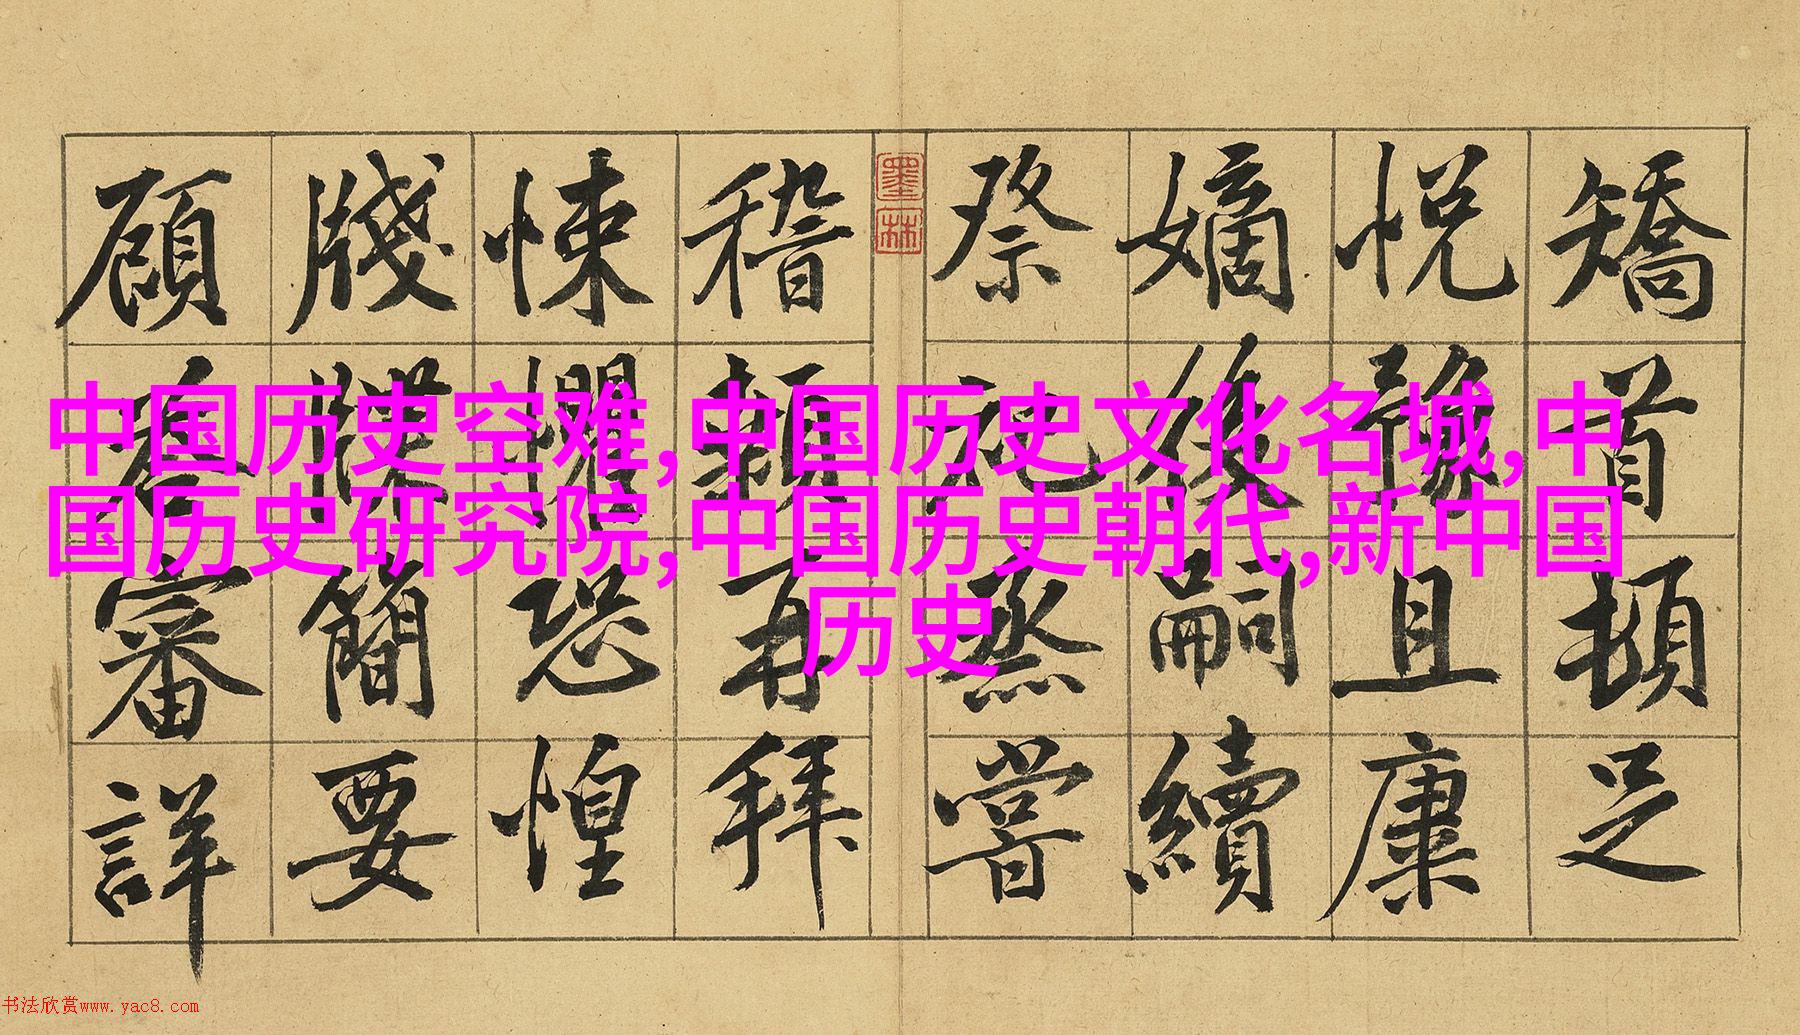 矯首頓足
悅豫且康
嫡後嗣續
祭祀蒸嘗
墨林
稽顙再拜
悚懼恐惶
牋牒簡要
顧荅審詳
中国历史空难,中国历史文化名城,中
国历史研究院,中国历史朝代,新中国
历史
书法欣赏www.yac8.com